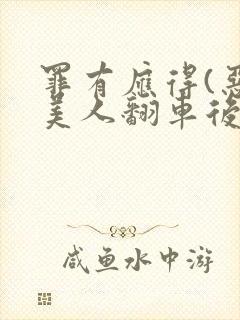 罪有应得(恶
美人翻车后
咸鱼水中游